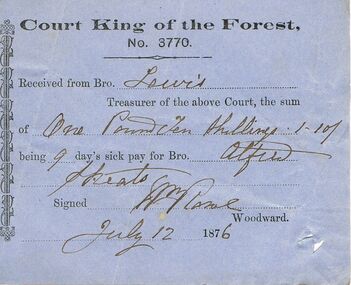 Court King of the Forest,
No. 3770.
Received from Bro. Lewis
Treasurer of the above Court, the sum
of One Pound Ten Shillings 1-10/
being 9 day's sick pay for Bro. Alfred
Skeats
Signed Wm Rowe
Woodward.
July 12 1876